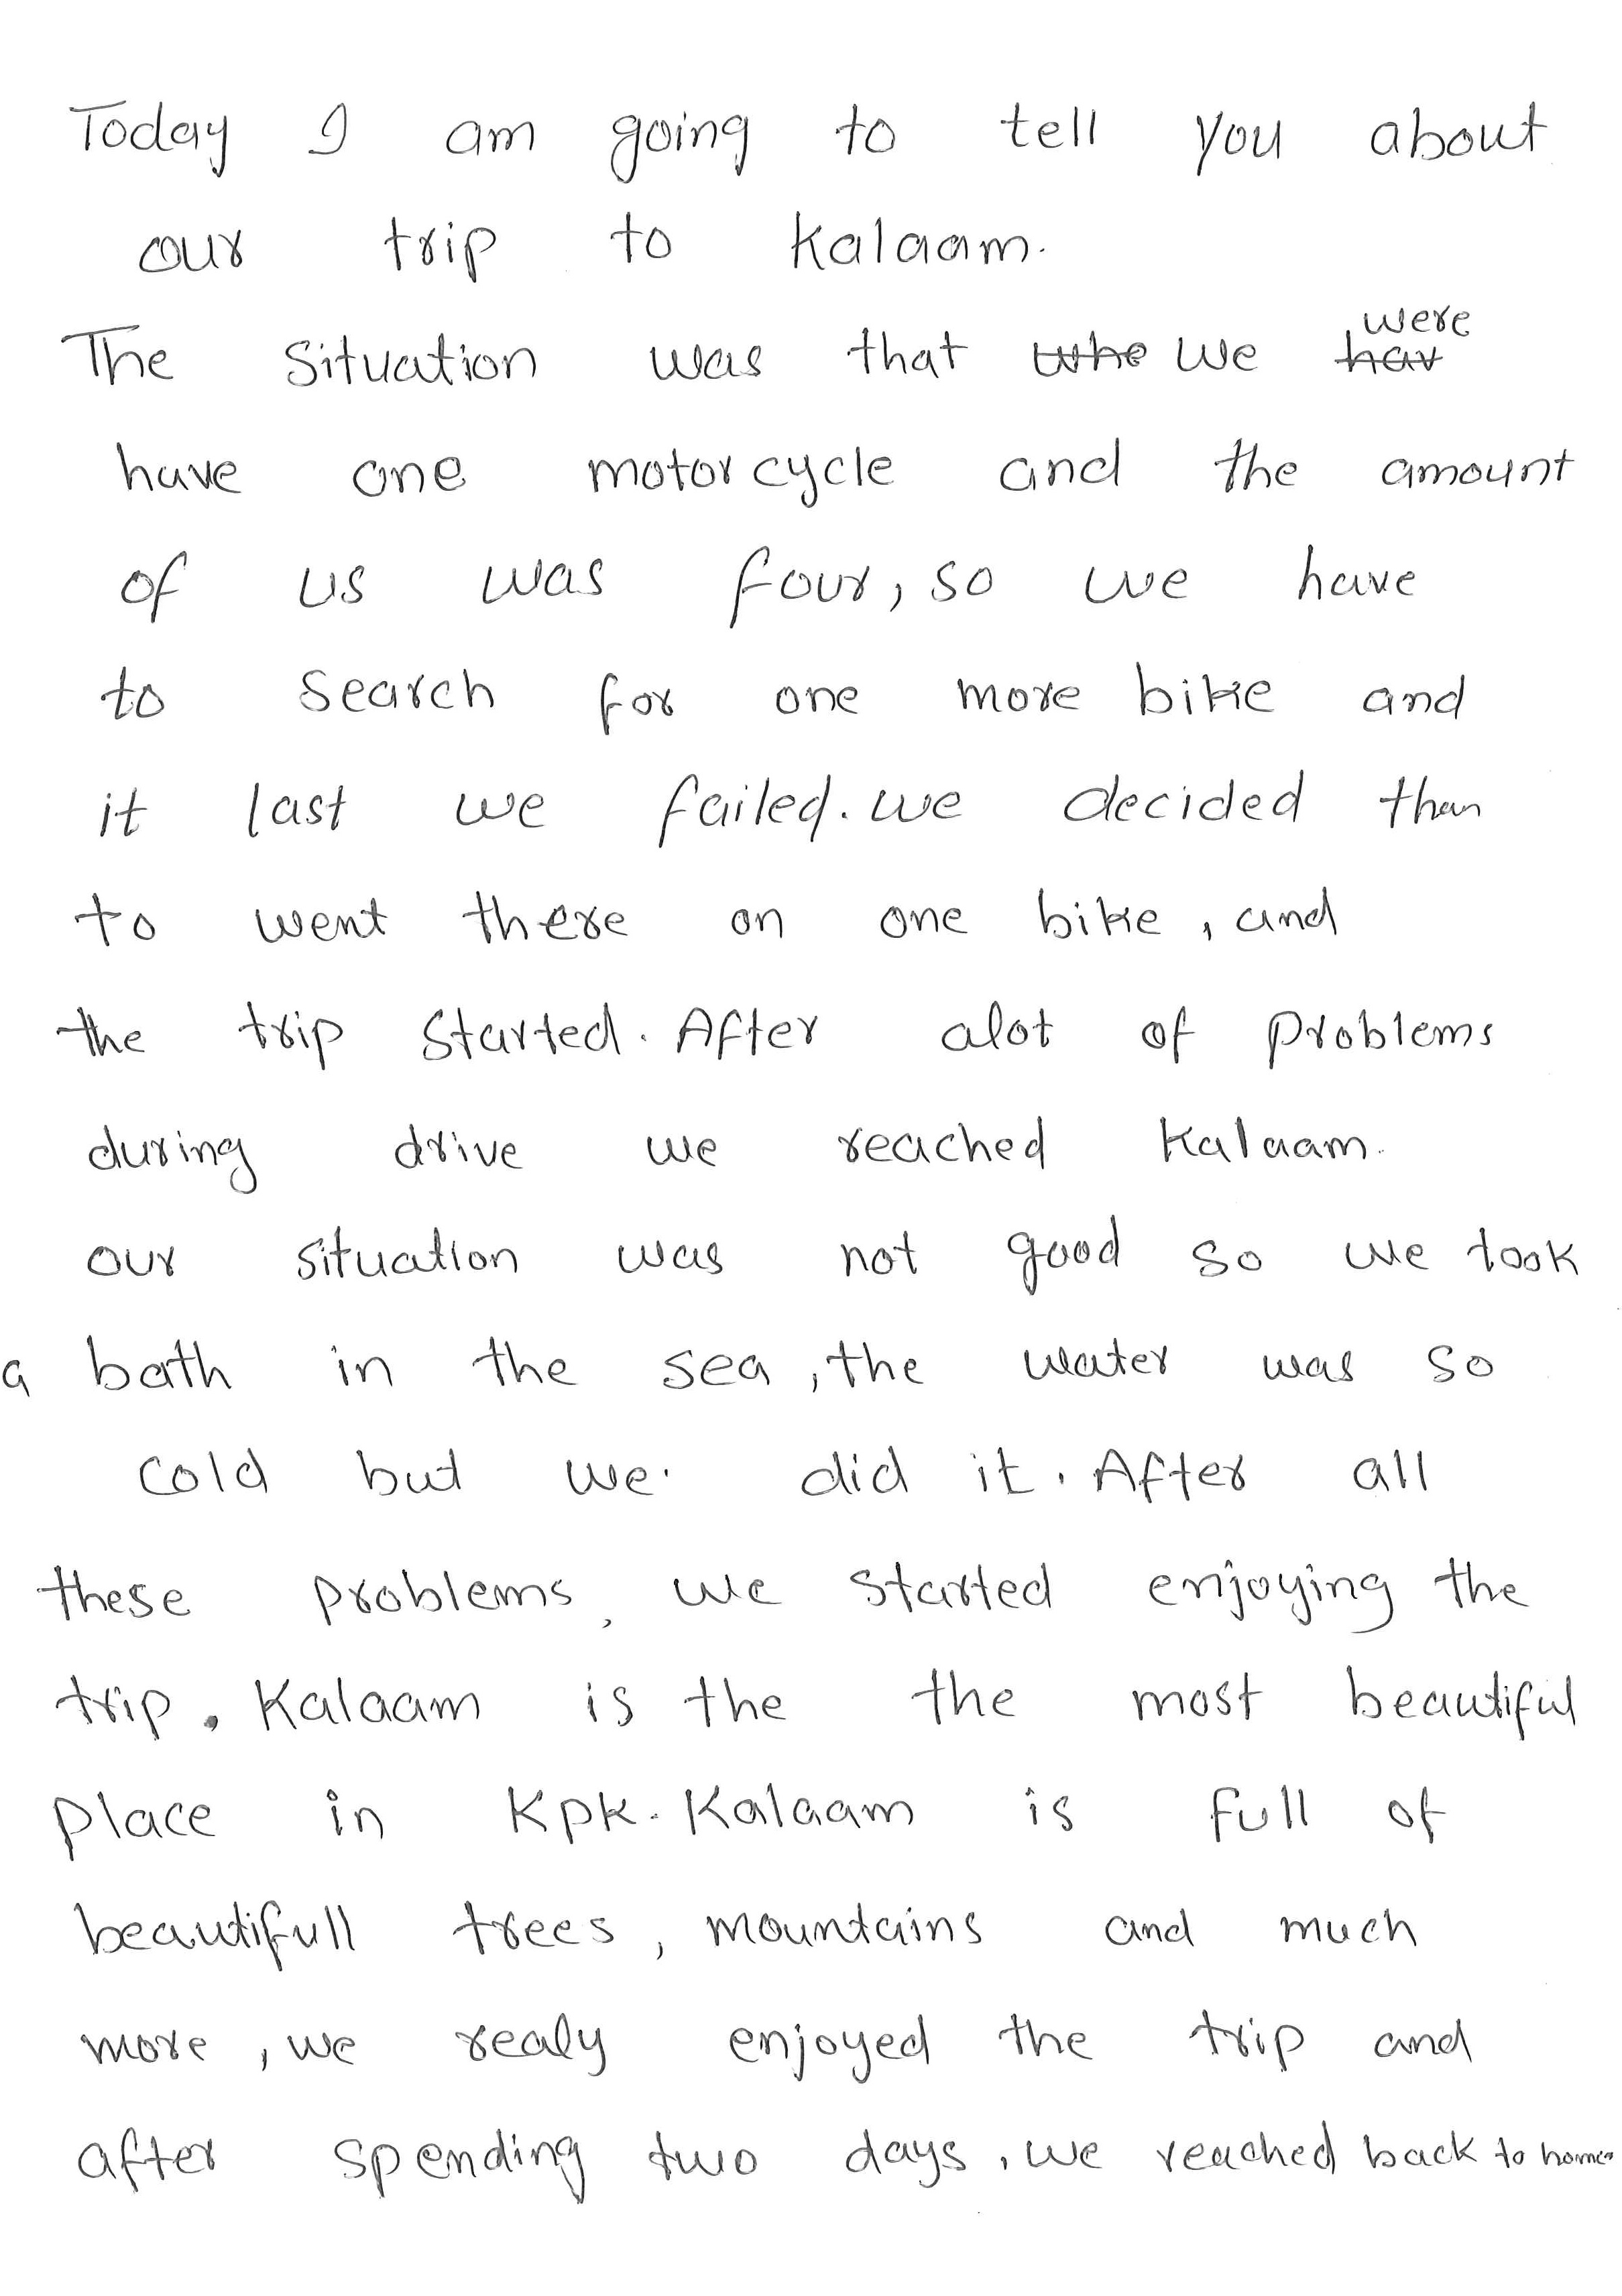 Today I am going to tell you about
our trip to Kalaam.
The situation was that who we hav were
have one motorcycle and the amount
of us was four, so we have
to search for one more bike and
it last we failed. we decided than
to went there on one bike, and
the trip started. After alot of problems
during drive we reached Kalaam.
our situation was not good so we took
a bath in the sea, the water was so
cold but we did it. After all
these problems, we started enjoying the
trip. Kalaam is the the most beautiful
place in Kpk. Kalaam is full of
beautifull trees, mountains and much
more, we realy enjoyed the trip and
after spending two days, we reached back to home.